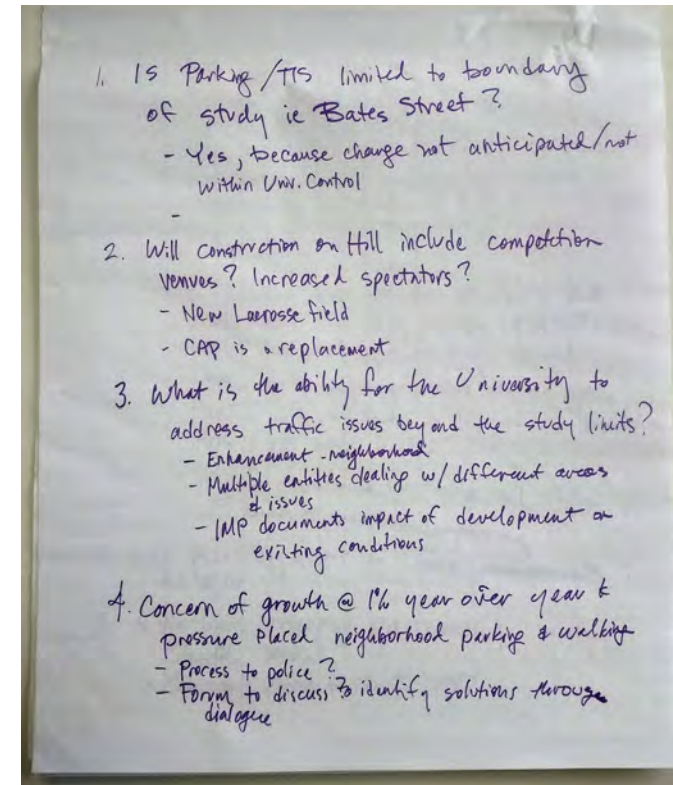 1. Is Parking/TIS limited to boundary
of study ie Bates Street?
- Yes, because change not anticipated/not
within Univ. Control
-
2. Will construction on Hill include competition
venues? Increased spectators?
- New Lacrosse field
- CAP is a replacement
3. What is the ability for the University to
address traffic issues beyond the study limits?
- Enhancement - neighborhood
- Multiple entities dealing w/ different areas
& issues
- IMP documents impact of development on
existing conditions
4. Concern of growth @ 1% year over year &
pressure placed neighborhood parking & walking
- Process to police?
- Forum to discuss & identify solutions through
dialogue